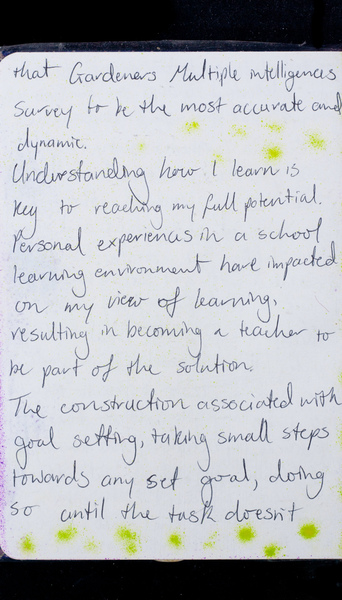 that Gardeners Multiple intelligences
survey to be the most accurate and
dynamic.
Understanding how I learn is
key to reaching my full potential.
Personal experiences in a school
learning environment have impacted
on my view of learning,
resulting in becoming a teacher to
be part of the solution.
The construction associated with
goal setting, taking small steps
towards any set goal, doing
so until the task doesn't